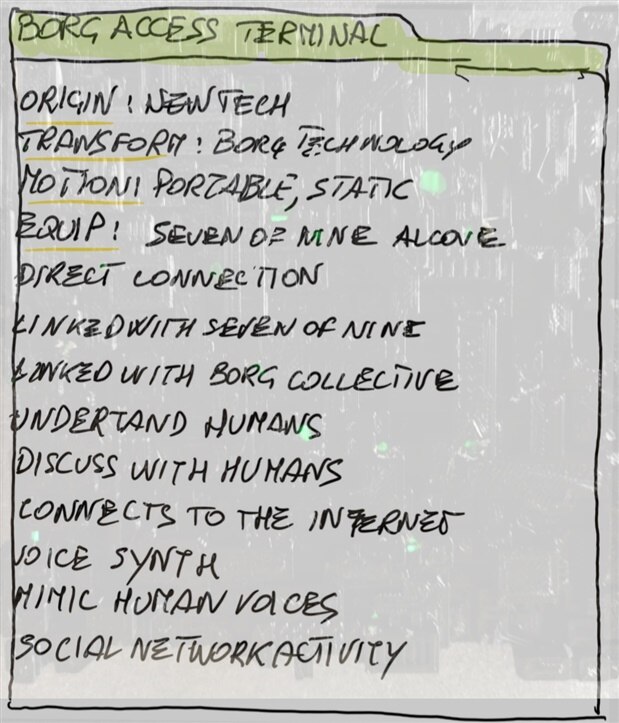 BORG ACCESS TERMINAL
ORIGIN: NEWTECH
TRANSFORM: BORG TECHNOLOGY
MOTION: PORTABLE, STATIC
EQUIP: SEVEN OF NINE ALCOVE
DIRECT CONNECTION
LINKED WITH SEVEN OF NINE
LINKED WITH BORG COLLECTIVE
UNDERTAND HUMANS
DISCUSS WITH HUMANS
CONNECTS TO THE INTERNET
VOICE SYNTH
MIMIC HUMAN VOICES
SOCIAL NETWORK ACTIVITY